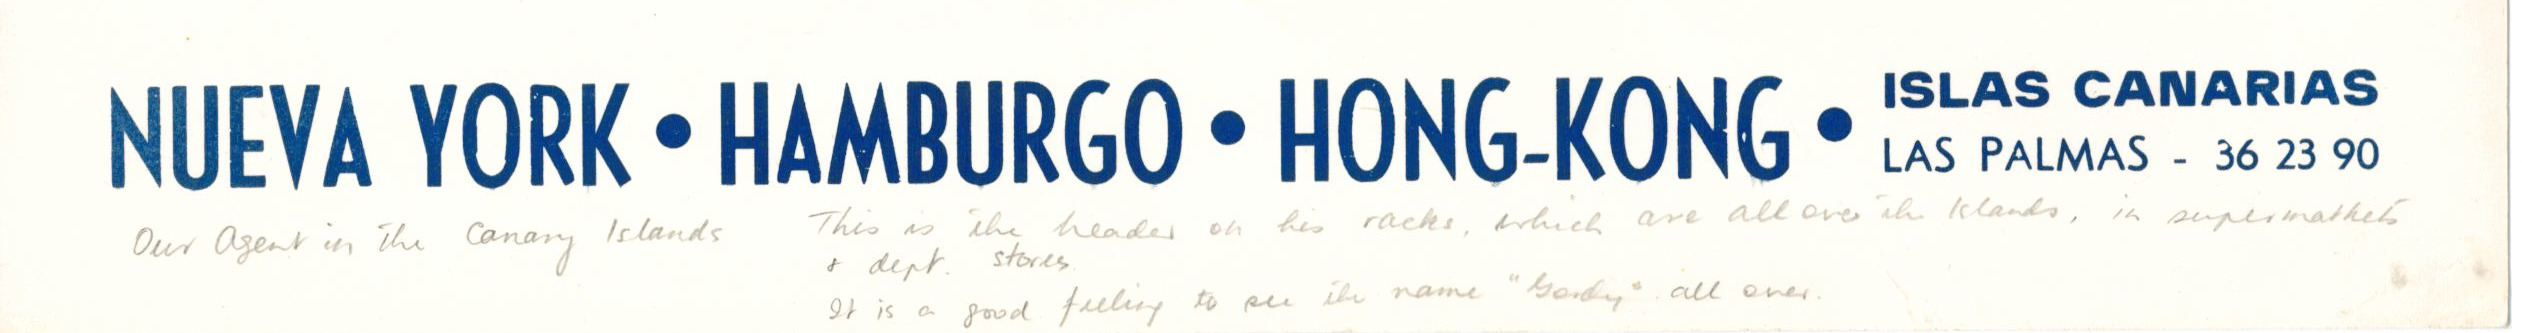 NUEVA YORK • HAMBURGO • HONG-KONG •
ISLAS CANARIAS
LAS PALMAS - 36 23 90
Our Agent in the Canary Islands
This is the header on his racks, which are all over the Islands, in supermarkets
& dept. stores.
It is a good feeling to see the name "Gordy" all over.